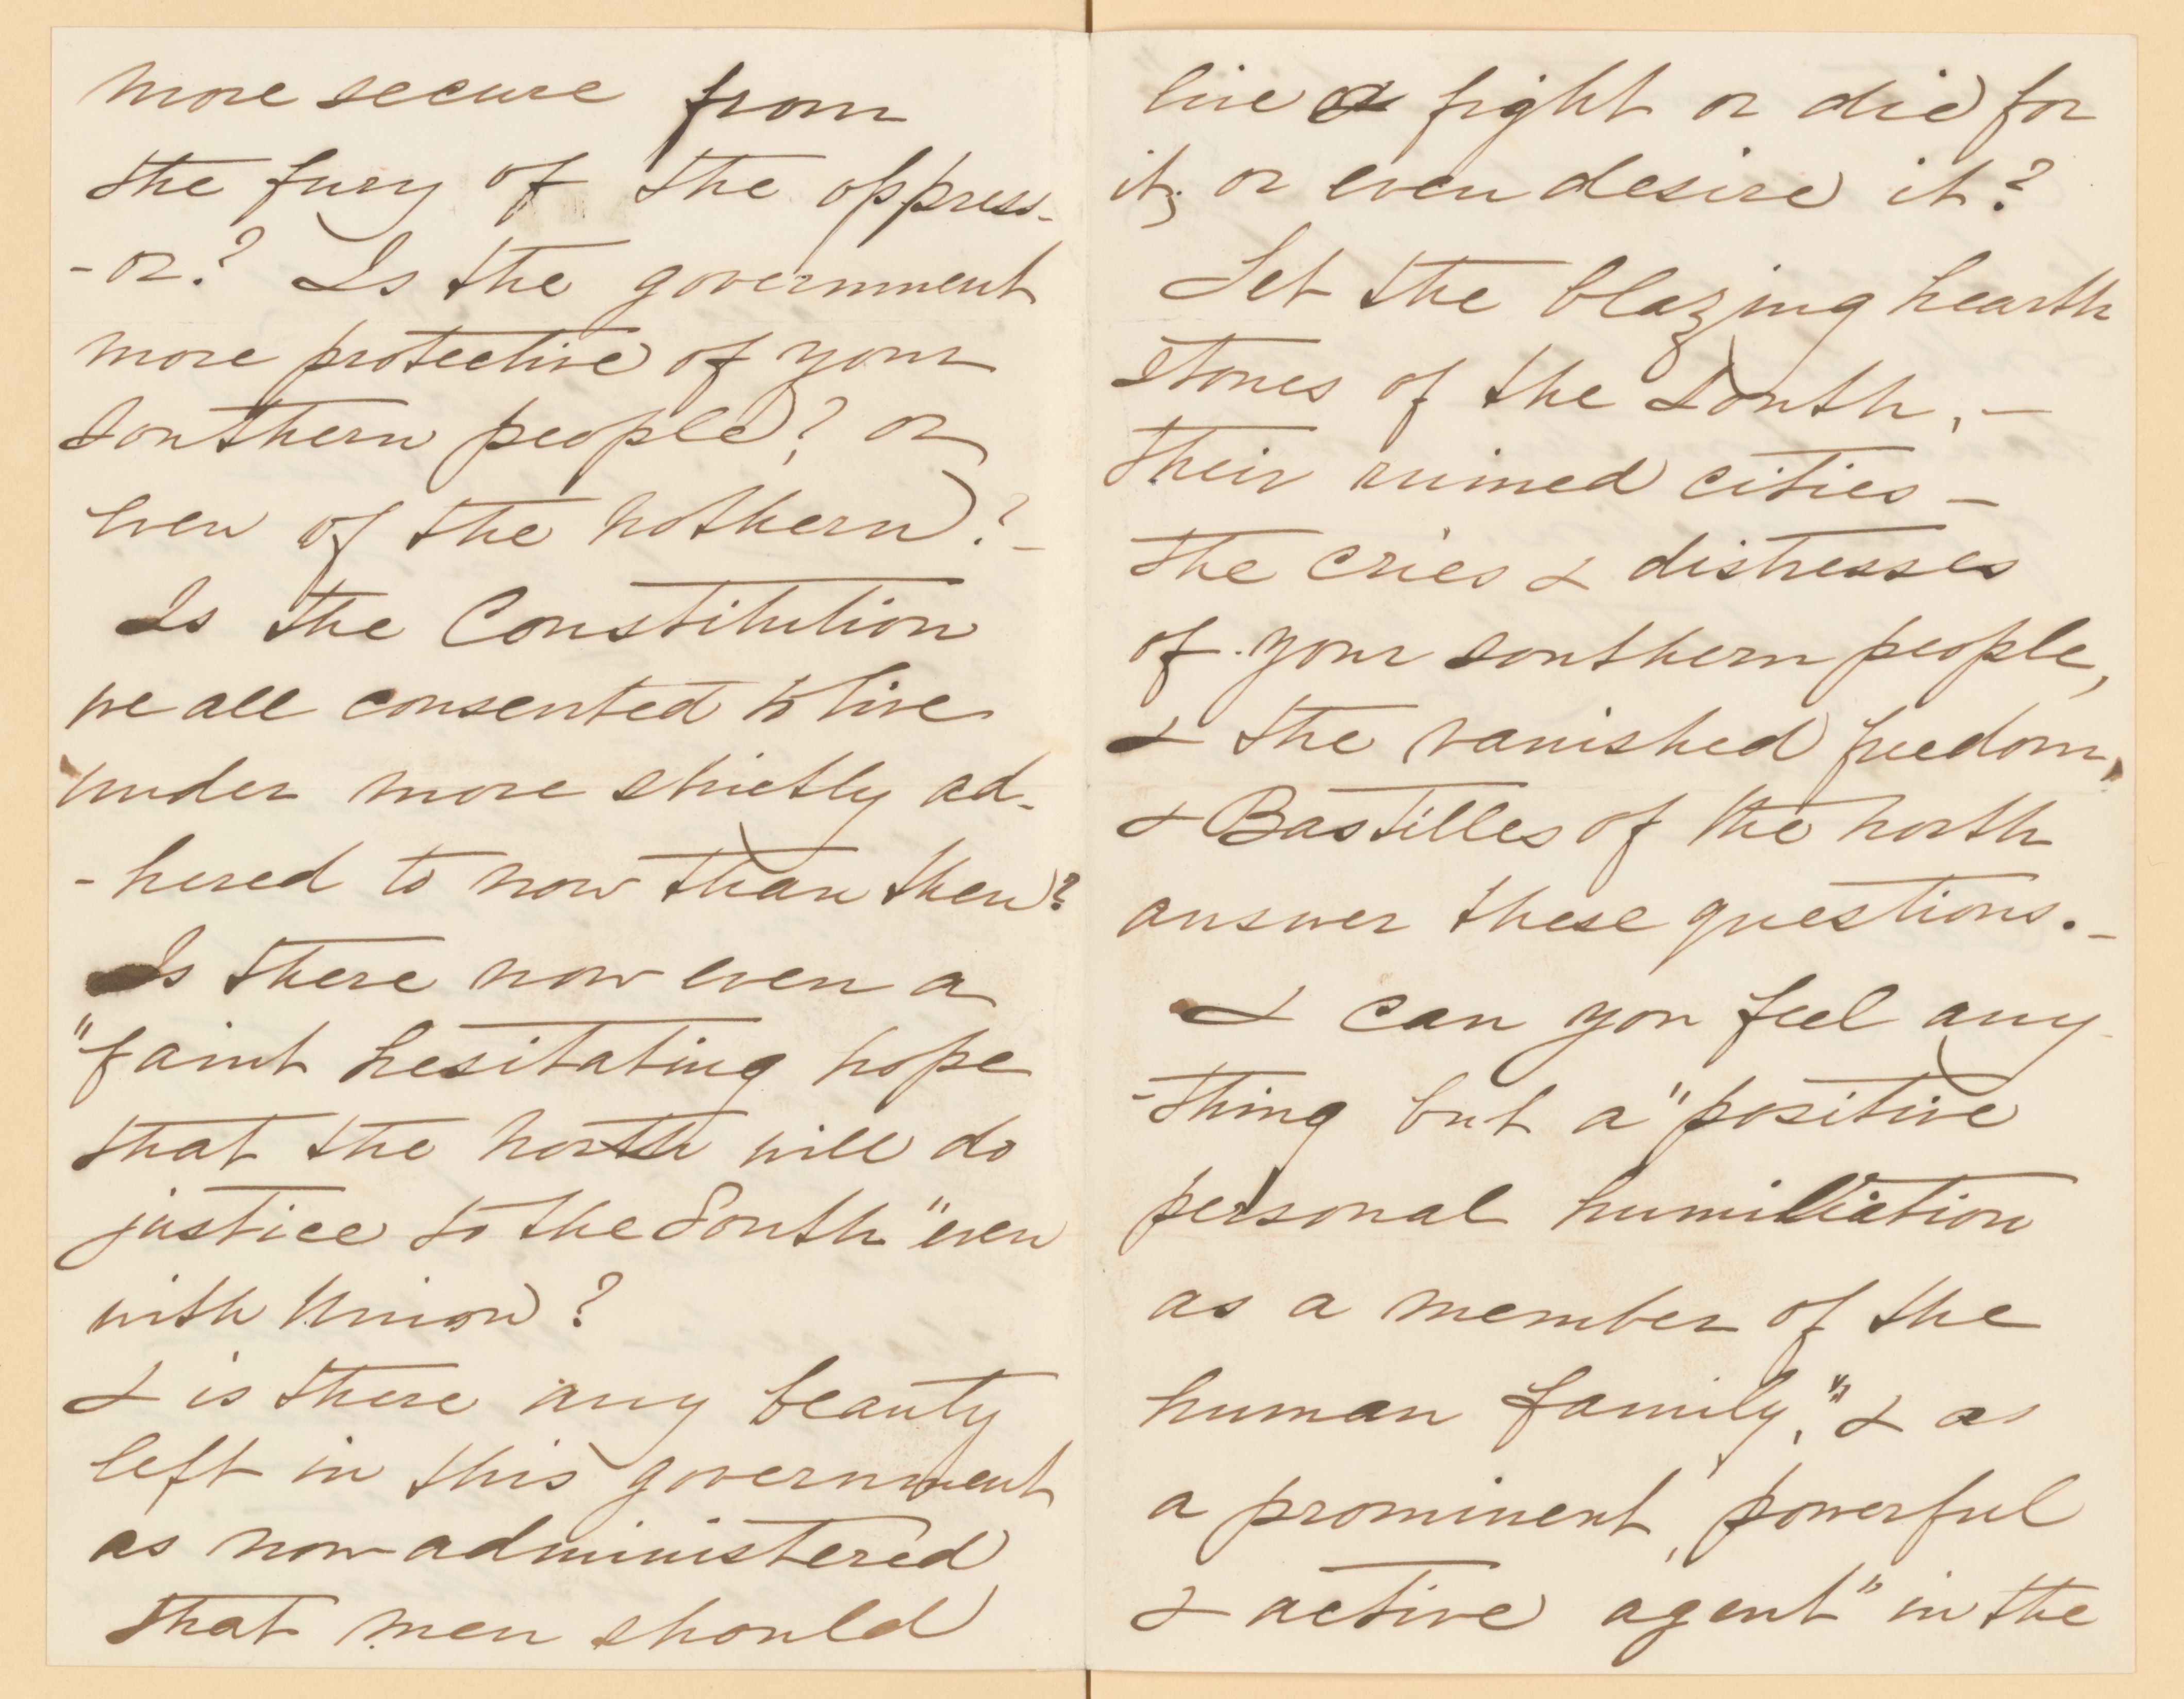 more secure from
the fury of the oppress-
-or? Is the government
more protective of your
Southern people? or
even of the nothern?-
Is the Constitution
we all consented to live
under more strictly ad-
-hered to now than then?
Is there now even a
"faint hesitating hope
that the north will do
justice to the South" even
with Union?
& is there any beauty
left in this government
as now administered
that men should
live or fight or die for
it; or even desire it?
Let the blazing hearth
stones of the South, -
their ruined cities -
the cries & distresses
of your southern people,
& the vanished freedom,
& Bastilles of the north
answer these questions. -
& can you feel any
-thing but a "positive
personal humiliation
as a member of the
human family," & as
a prominent, powerful
& active agent" in the